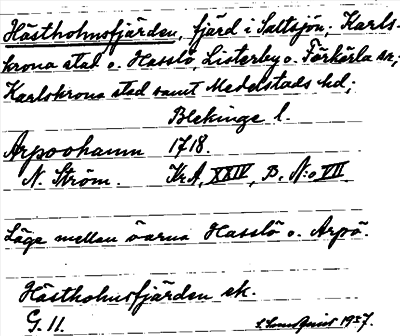 Hästholmsfjärden, fjärd i Saltsjön; Karls-
krona stad o. Hasslö, Listerby o. Förkärla sn;
Karlskrona stad samt Medelstads hd;
Blekinge l.
Arpoohamn 1718.
N. Ström. Kr A, XXIV, B, N:o VII
Läge mellan öarna Hasslö o. Arpö.
Hästholmsfjärden sk.
G. 11. 1957.